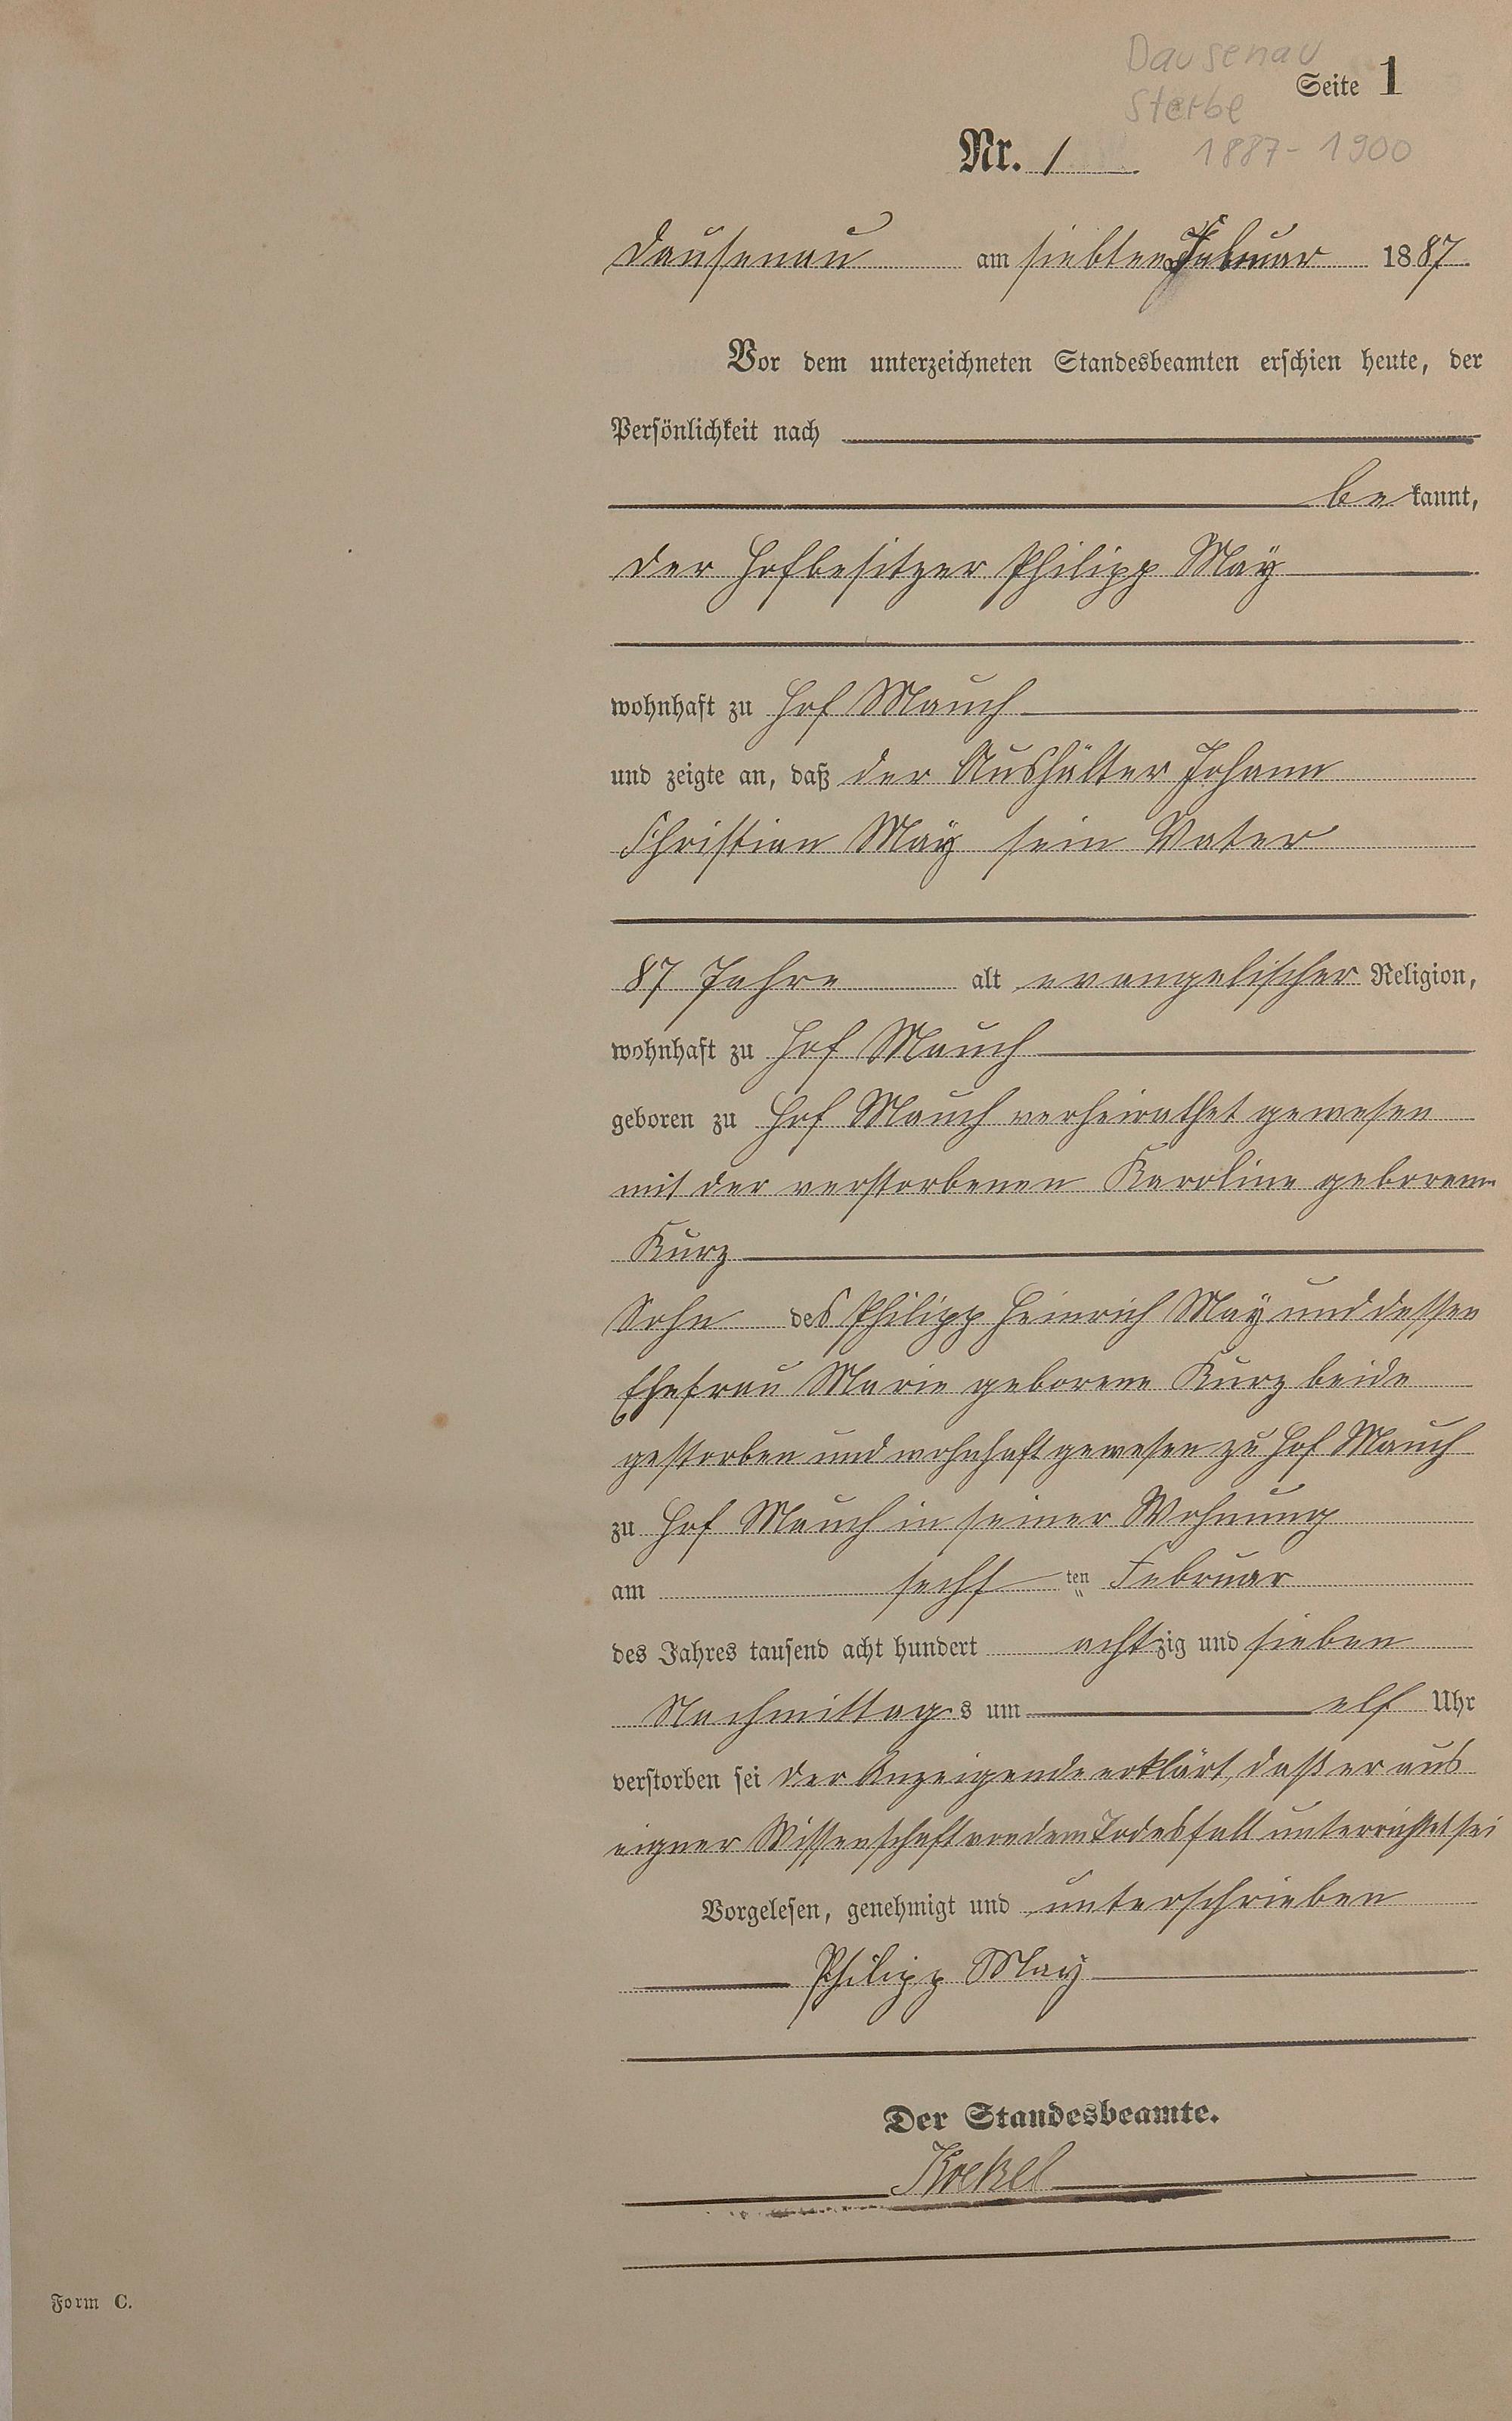 Dausenau
Seite 1
Sterbe
Nr. 1
1887-1900
Dausenau am siebten Februar 1887
Vor dem unterzeichneten Standesbeamten erschien heute, der
Persönlichkeit nach
bekannt,
der Hofbesitzer Philipp Maÿ
wohnhaft zu Hof Mauch
und zeigte an, daß der Aushälter Johann
Christian Maÿ sein Vater
87 Jahre alt evangelischer Religion,
wohnhaft zu Hof Mauch
geboren zu Hof Mauch verheirathet gewesen
mit der verstorbenen Karoline geborenen
Kurz
Sohn des Philipp Heinrich Maÿ und dessen
Ehefrau Marie geborene Kurz beide
gestorben und wohnhaft gewesen zu Hof Mauch
zu Hof Mauch in seiner Wohnung
am sechsten Februar
des Jahres tausend acht hundert achtzig und sieben
Nachmittags um elf Uhr
verstorben sei der Anzeigende erklärt, daß er aus
eigner Wissenschaft von dem Todesfall unterrichtet sei
Vorgelesen, genehmigt und unterschrieben
Philipp May
Der Standesbeamte.
Form C.